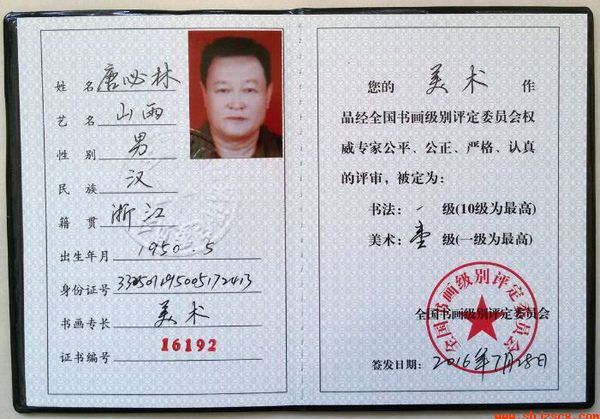 姓名 唐必林
艺名 山西
性别 男
民族 汉
籍贯 浙江
出生年月 1950.5
身份证号
书画专长 美术
证书编号 16192
您的 美术 作
品经全国书画级别评定委员会权
威专家公平、公正、严格、认真
的评审，被定为：
书法： 级(10级为最高)
美术：壹 级(一级为最高)
全国书画级别评定委员会
全国书画级别评定委员会
签发日期：2016年7月28日